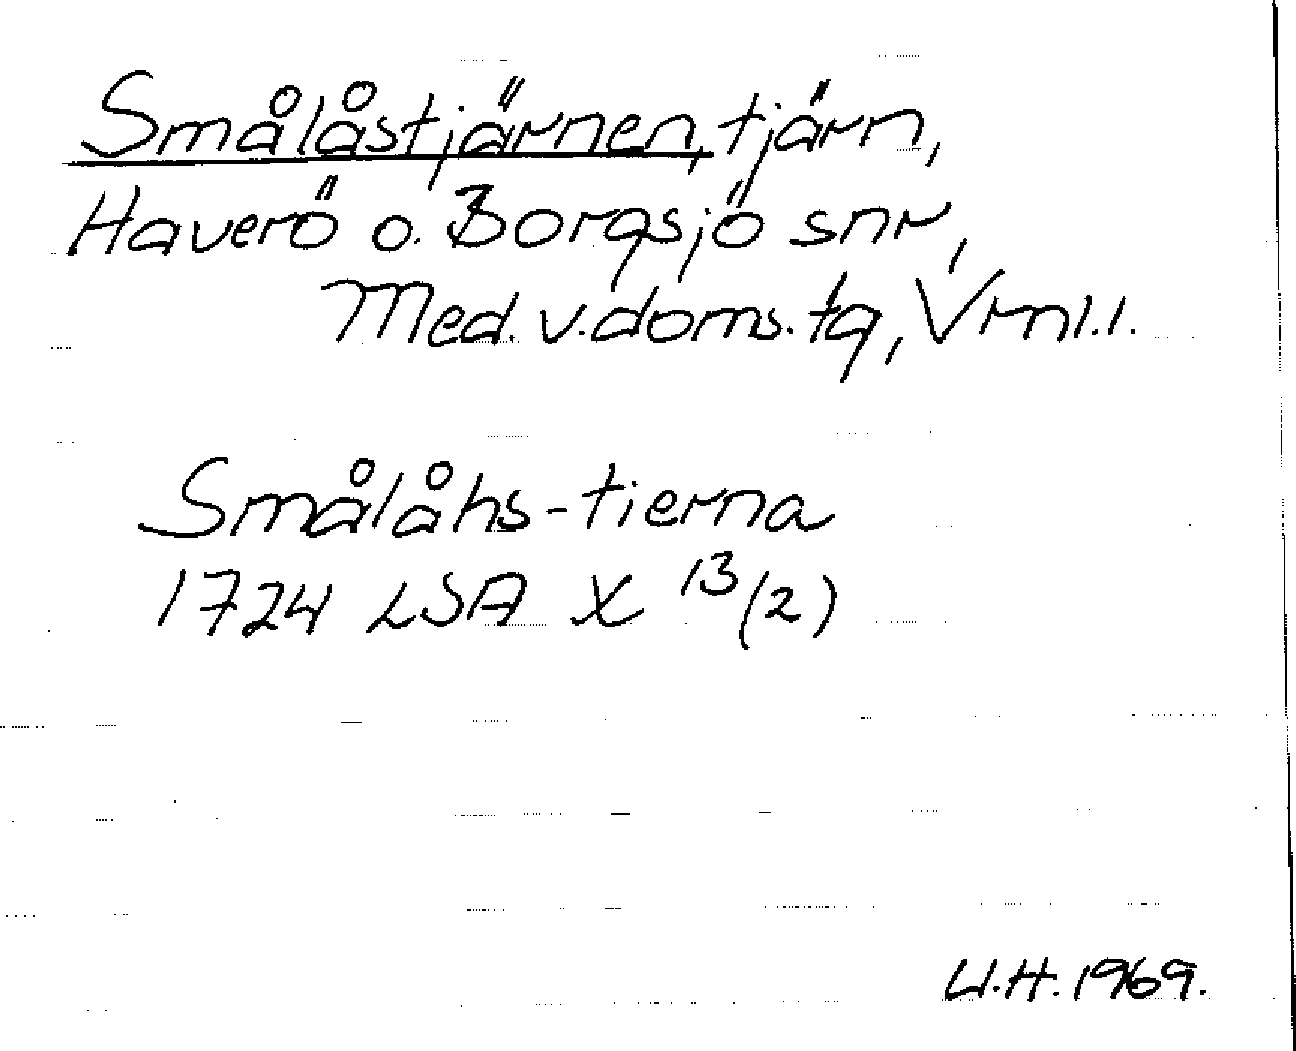 Smålåstjärnen, tjärn,
Haverö o. Borgsjö snr,
Med. v. doms. tg, Vrml. l.
Smålåhs-tierna
1724 LSA X 13/(2)
U.H. 1969.